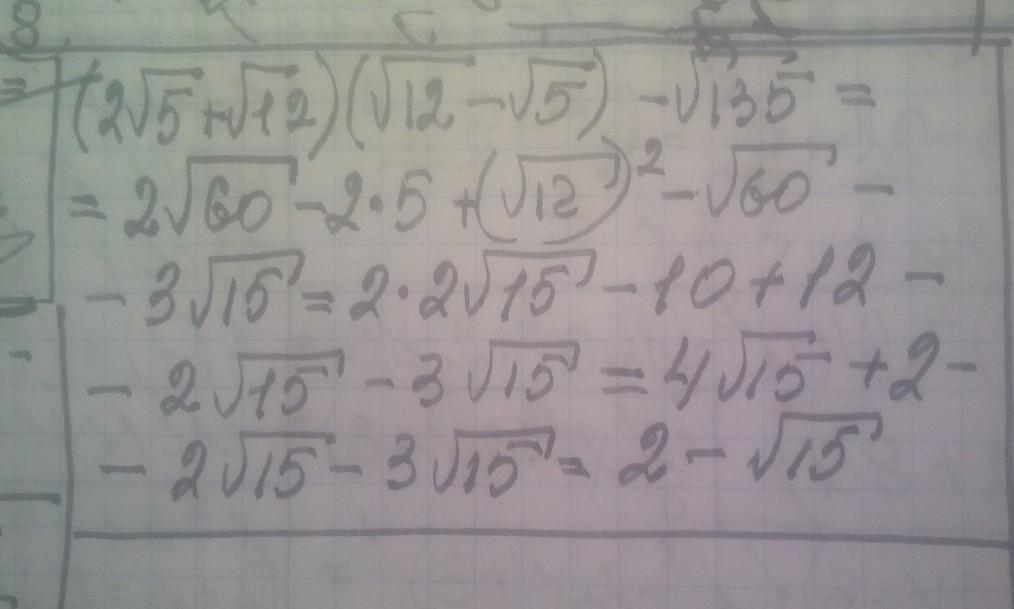 8
(2√5+√12)(√12-√5) -√135 =
= 2√60 -2·5 +(√12)² -√60 -
- 3√15 = 2·2√15 -10+12 -
- 2√15 -3√15 =4√15 +2-
- 2√15 - 3√15 = 2 - √15